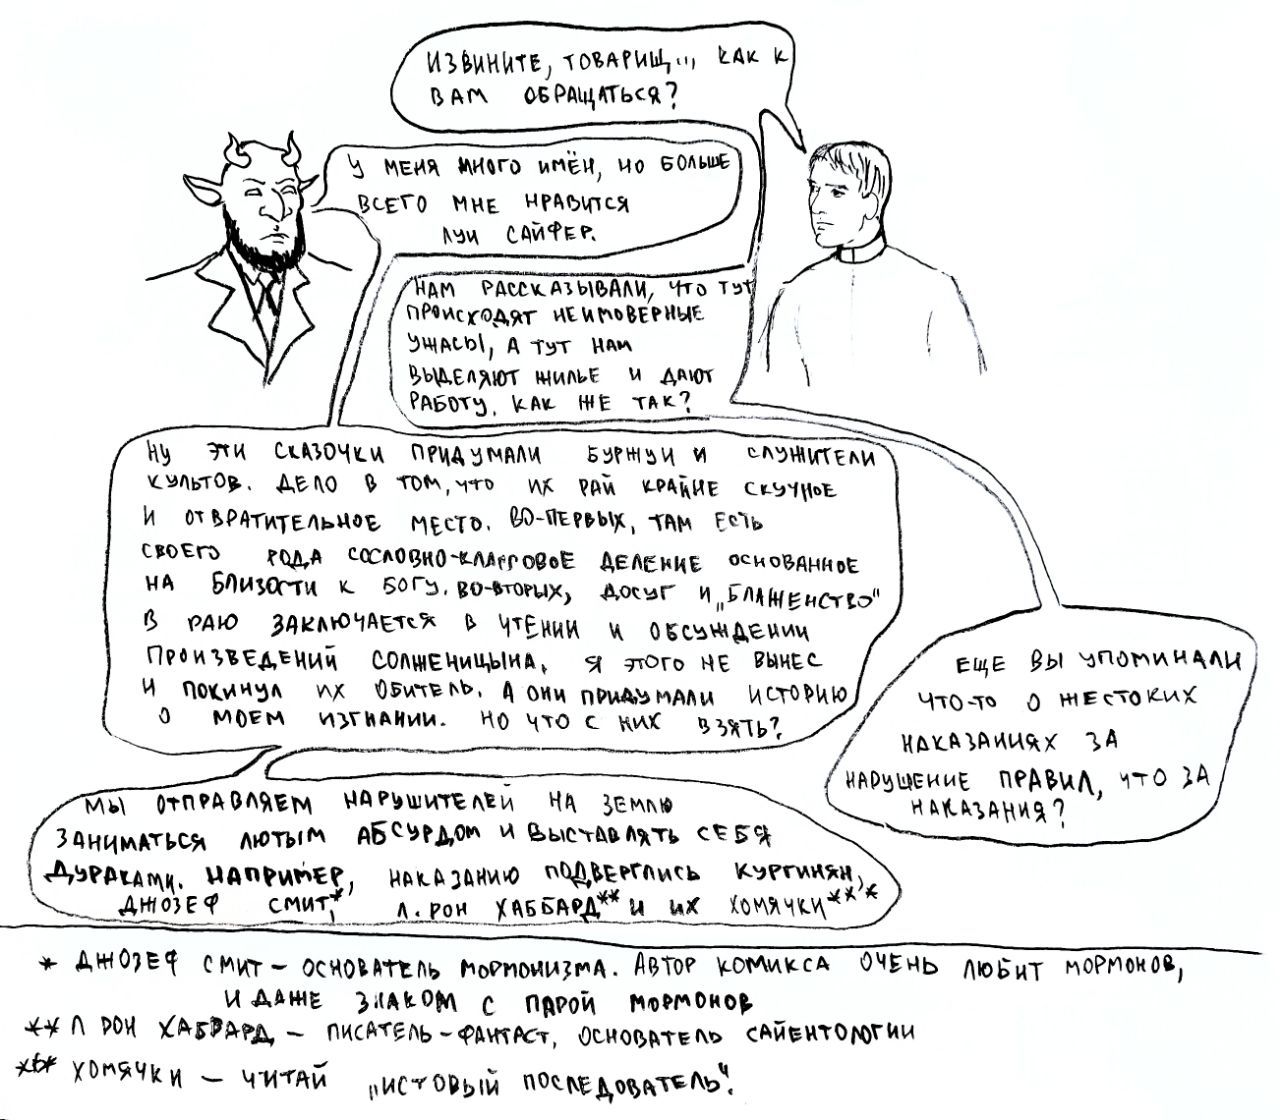 ИЗВИНИТЕ, ТОВАРИЩ..., КАК К
ВАМ ОБРАЩАТЬСЯ?
У МЕНЯ МНОГО ИМЁН, НО БОЛЬШЕ
ВСЕГО МНЕ НРАВИТСЯ
ЛУИ САЙФЕР.
НАМ РАССКАЗЫВАЛИ, ЧТО ТУТ
ПРОИСХОДЯТ НЕИМОВЕРНЫЕ
УЖАСЫ, А ТУТ НАМ
ВЫДЕЛЯЮТ ЖИЛЬЕ И ДАЮТ
РАБОТУ. КАК ЖЕ ТАК?
НУ ЭТИ СКАЗОЧКИ ПРИДУМАЛИ БУРЖУИ И СЛУЖИТЕЛИ
КУЛЬТОВ. ДЕЛО В ТОМ, ЧТО ИХ РАЙ КРАЙНЕ СКУЧНОЕ
И ОТВРАТИТЕЛЬНОЕ МЕСТО. ВО-ПЕРВЫХ, ТАМ ЕСТЬ
СВОЕГО РОДА СОСЛОВНО-КЛАССОВОЕ ДЕЛЕНИЕ ОСНОВАННОЕ
НА БЛИЗОСТИ К БОГУ. ВО-ВТОРЫХ, ДОСУГ И „БЛАЖЕНСТВО"
В РАЮ ЗАКЛЮЧАЕТСЯ В ЧТЕНИИ И ОБСУЖДЕНИИ
ПРОИЗВЕДЕНИЙ СОЛЖЕНИЦЫНА. Я ЭТОГО НЕ ВЫНЕС
И ПОКИНУЛ ИХ ОБИТЕЛЬ. А ОНИ ПРИДУМАЛИ ИСТОРИЮ
О МОЕМ ИЗГНАНИИ. НО ЧТО С НИХ ВЗЯТЬ?
ЕЩЕ ВЫ УПОМИНАЛИ
ЧТО-ТО О ЖЕСТОКИХ
НАКАЗАНИЯХ ЗА
НАРУШЕНИЕ ПРАВИЛ, ЧТО ЗА
НАКАЗАНИЯ?
МЫ ОТПРАВЛЯЕМ НАРУШИТЕЛЕЙ НА ЗЕМЛЮ
ЗАНИМАТЬСЯ ЛЮТЫМ АБСУРДОМ И ВЫСТАВЛЯТЬ СЕБЯ
ДУРАКАМИ. НАПРИМЕР, НАКАЗАНИЮ ПОДВЕРГЛИСЬ КУРГИНЯН,
ДЖОЗЕФ СМИТ*, Л. РОН ХАББАРД** И ИХ ХОМЯЧКИ***
* ДЖОЗЕФ СМИТ – ОСНОВАТЕЛЬ МОРМОНИЗМА. АВТОР КОМИКСА ОЧЕНЬ ЛЮБИТ МОРМОНОВ,
И ДАЖЕ ЗНАКОМ С ПАРОЙ МОРМОНОВ
** Л РОН ХАББАРД – ПИСАТЕЛЬ-ФАНТАСТ, ОСНОВАТЕЛЬ САЙЕНТОЛОГИИ
*** ХОМЯЧКИ – ЧИТАЙ „ИСТОВЫЙ ПОСЛЕДОВАТЕЛЬ".